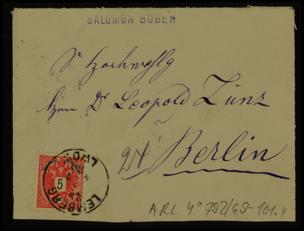 SALOMON BUBER
Sr Hochwohlg
Herrn Dr Leopold Zunz
24/ Berlin
5
LEMBERG
LWÓW
ARC 4° 792/G3-101.4